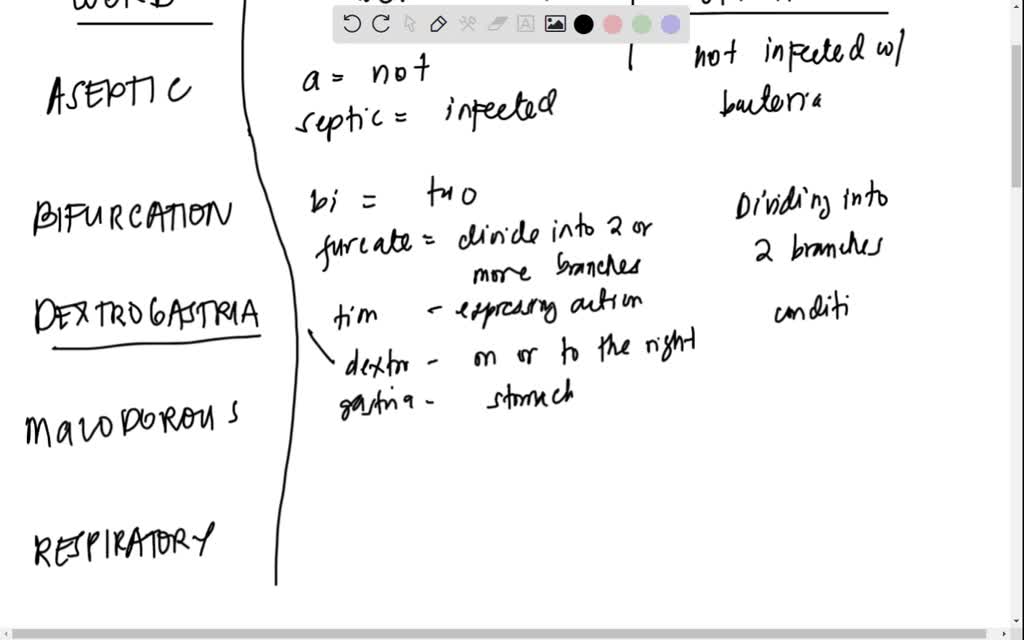 WORD
ASEPTIC
a = not
septic = infected
not infected w/
bacteria
BIFURCATION
bi = two
furcate = divide into 2 or
more branches
Dividing into
2 branches
DEXTROGASTRIA
tion - expressing action
dextro - on or to the right
gastria - stomach
conditi
MALODOROUS
RESPIRATORY